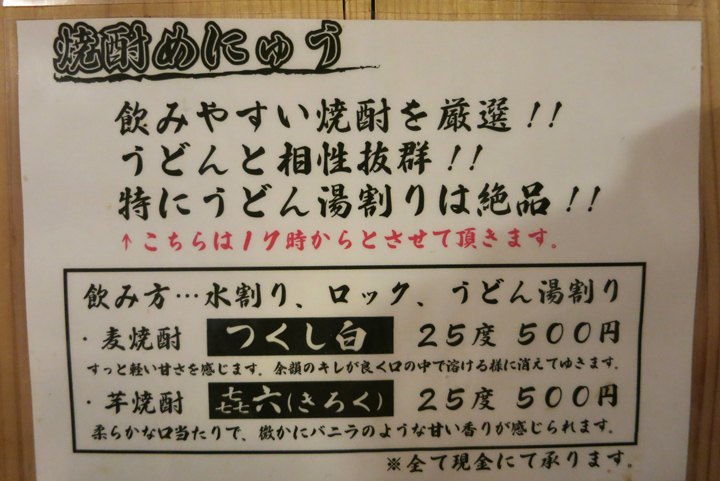 焼酎めにゅう
飲みやすい焼酎を厳選!!
うどんと相性抜群!!
特にうどん湯割りは絶品!!
↑こちらは17時からとさせて頂きます。
飲み方…水割り、ロック、うどん湯割り
・麦焼酎 つくし白 25度 500円
すっと軽い甘さを感じます。余韻のキレが良く口の中で溶ける様に消えてゆきます。
・芋焼酎 㐂六(きろく) 25度 500円
柔らかな口当たりで、微かにバニラのような甘い香りが感じられます。
※全て現金にて承ります。